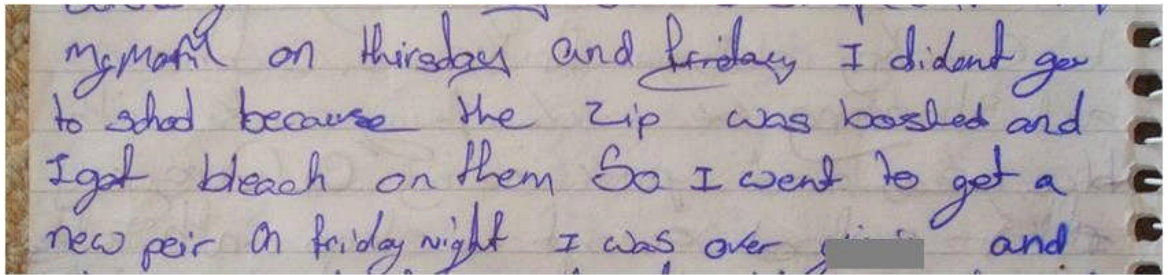 on thirsday and friday I dident go
to schod because the zip was bosled and
I got bleach on them So I went to get a
new peir On friday night I was over and